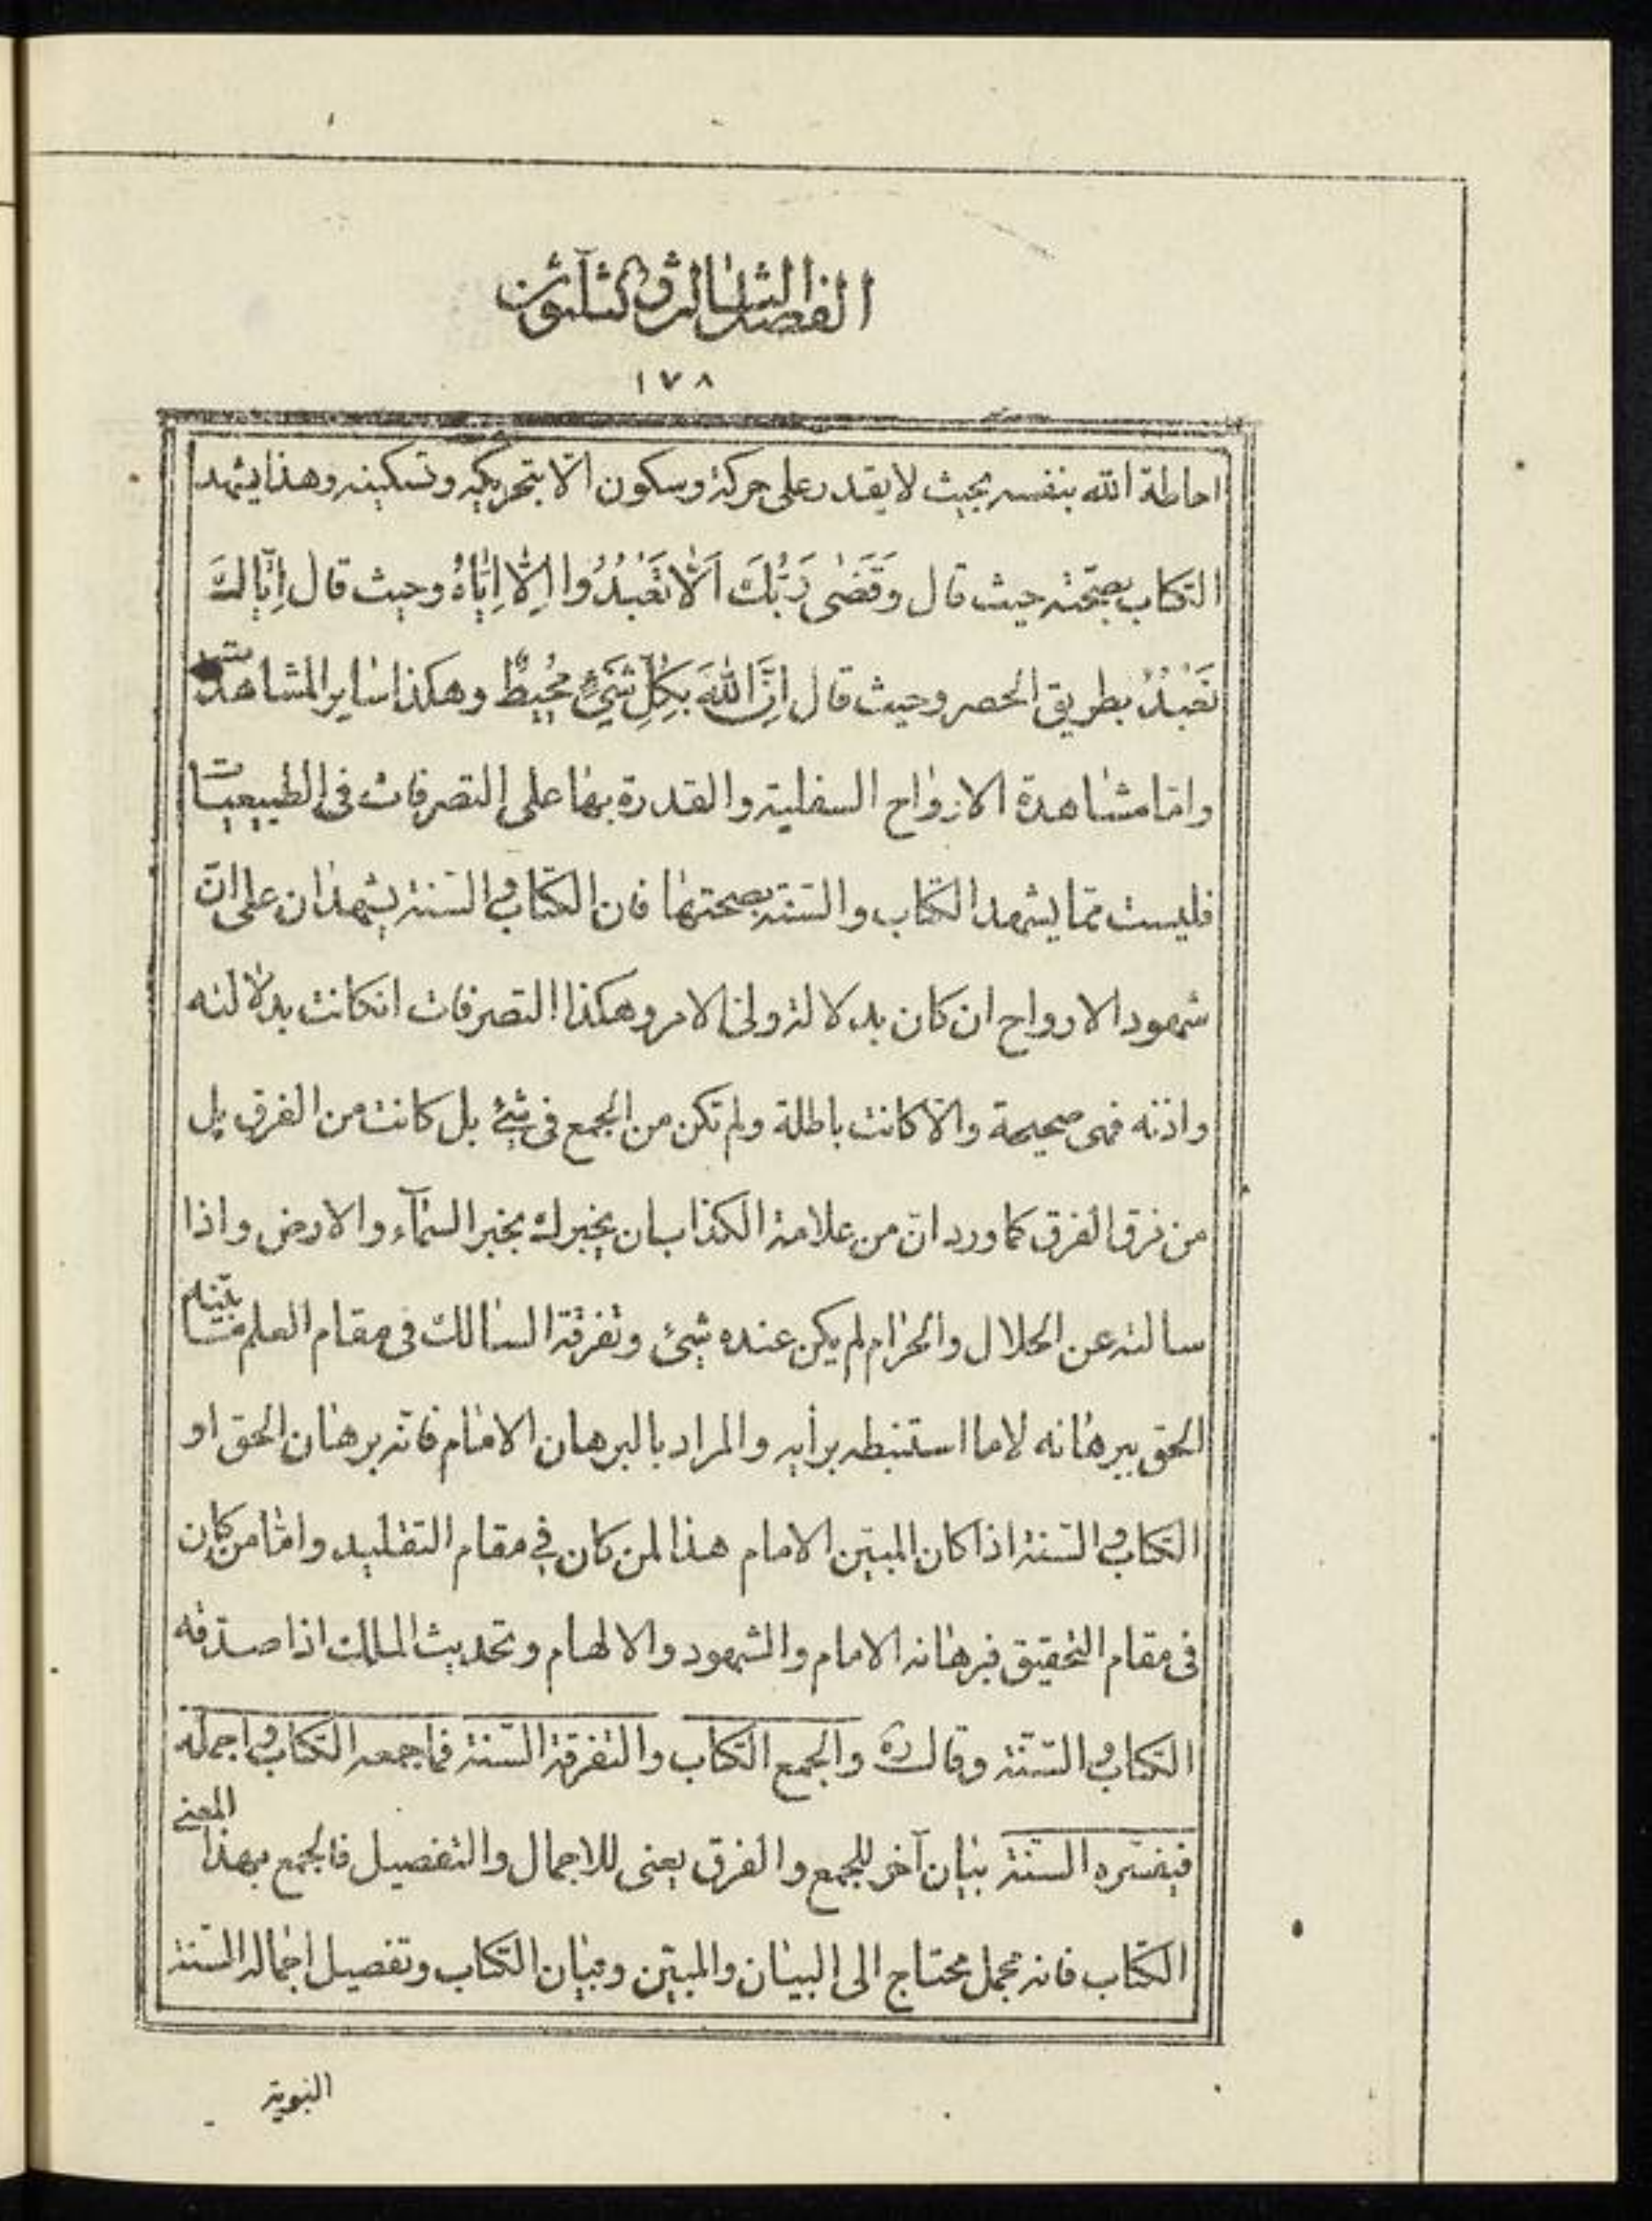 الفصل الثالث والثلثون
١٧٨
احاطة الله بنفسه بحيث لا يقدر على حركة وسكون الّا بتحريكه وتسكينه وهذا يشهد
الكتاب بصحّته حيث قال وَقَضٰى رَبُّكَ اَلّٰا تَعْبُدُوا اِلّٰا اِيّٰاهُ وحيث قال اِيّٰاكَ
نَعْبُدُ بطريق الحصر وحيث قال اِنَّ اللّٰهَ بِكُلِّ شَيْءٍ مُحِيطٌ وهكذا ساير المشاهدت
وامّا مشاهدة الارواح السفلية والقدرة بها على التصرفات فى الطبيعيات
فليست ممّا يشهد الكتاب والسّنة بصحتها فان الكتاب والسّنة يشهدان على انّ
شهود الارواح ان كان بدلالة ولىّ الامر وهكذا التصرفات انكانت بدلالته
واذنه فهى صحيحة والّا كانت باطلة ولم تكن من الجمع فى شئ بل كانت من الفرق بل
من فرق الفرق كما ورد انّ من علامة الكذاب ان يخبرك بخبر السّمآء والارض واذا
سالته عن الحلال والحرام لم يكن عنده شئ وتفرقة السالك فى مقام العلم ما بيّنه
الحق ببرهانه لا ما استنبطه برأيه والمراد بالبرهان الامام فانّه برهان الحق او
الكتاب والسّنة اذا كان المبيّن الامام هذا لمن كان فى مقام التقليد وامّا من كان
فى مقام التحقيق فبرهانه الامام والشهود والالهام وتحديث الملك اذا صدّقه
الكتاب والسّنّة وقال ره والجمع الكتاب والتفرقة السّنة فما جمعه الكتاب واجمله
فيفسّره السنّة بيان آخر للجمع والفرق يعنى للاجمال والتفصيل فالجمع بهذا المعنى
الكتاب فانه مجمل محتاج الى البيان والمبيّن وبيان الكتاب وتفصيل اجماله السّنة
النبوية